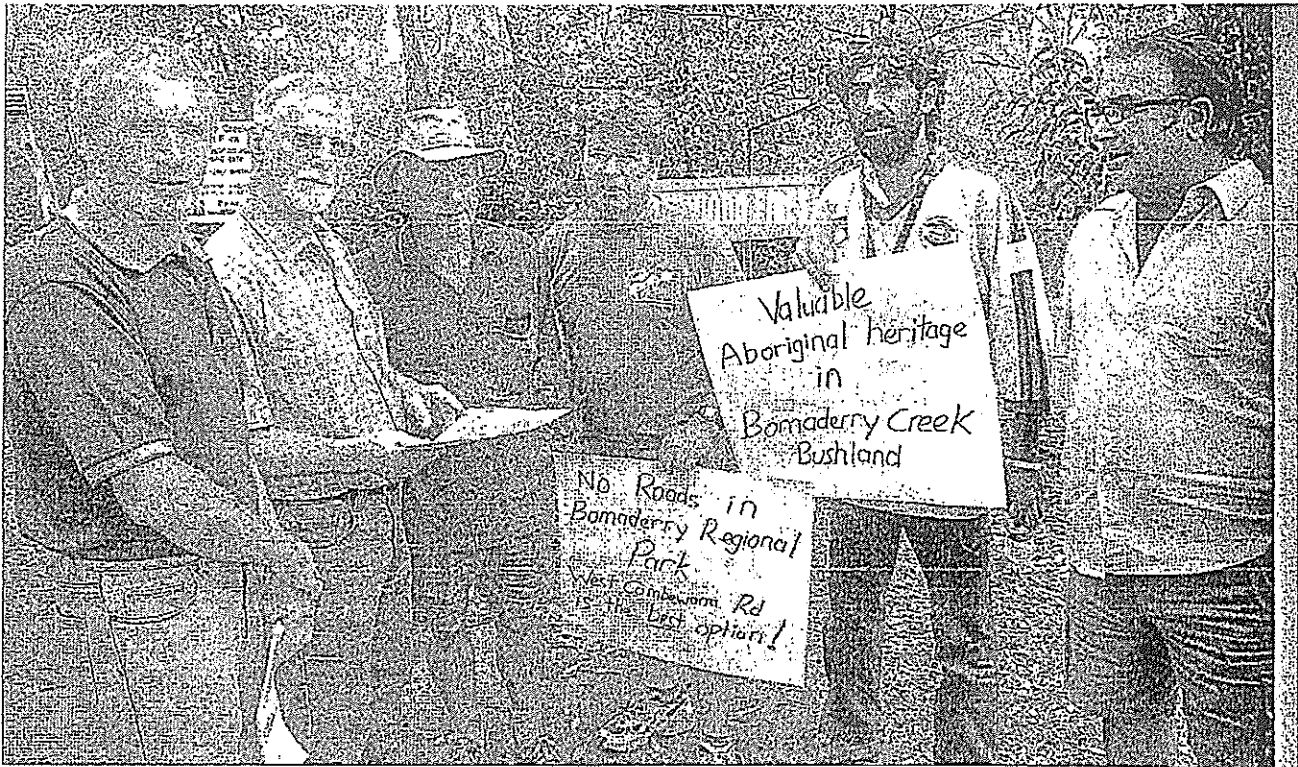 Valuable
Aboriginal heritage
in
Bomaderry Creek
Bushland
No Roads in
Bomaderry Regional
Park
West Cambewarra Rd
is the best option!